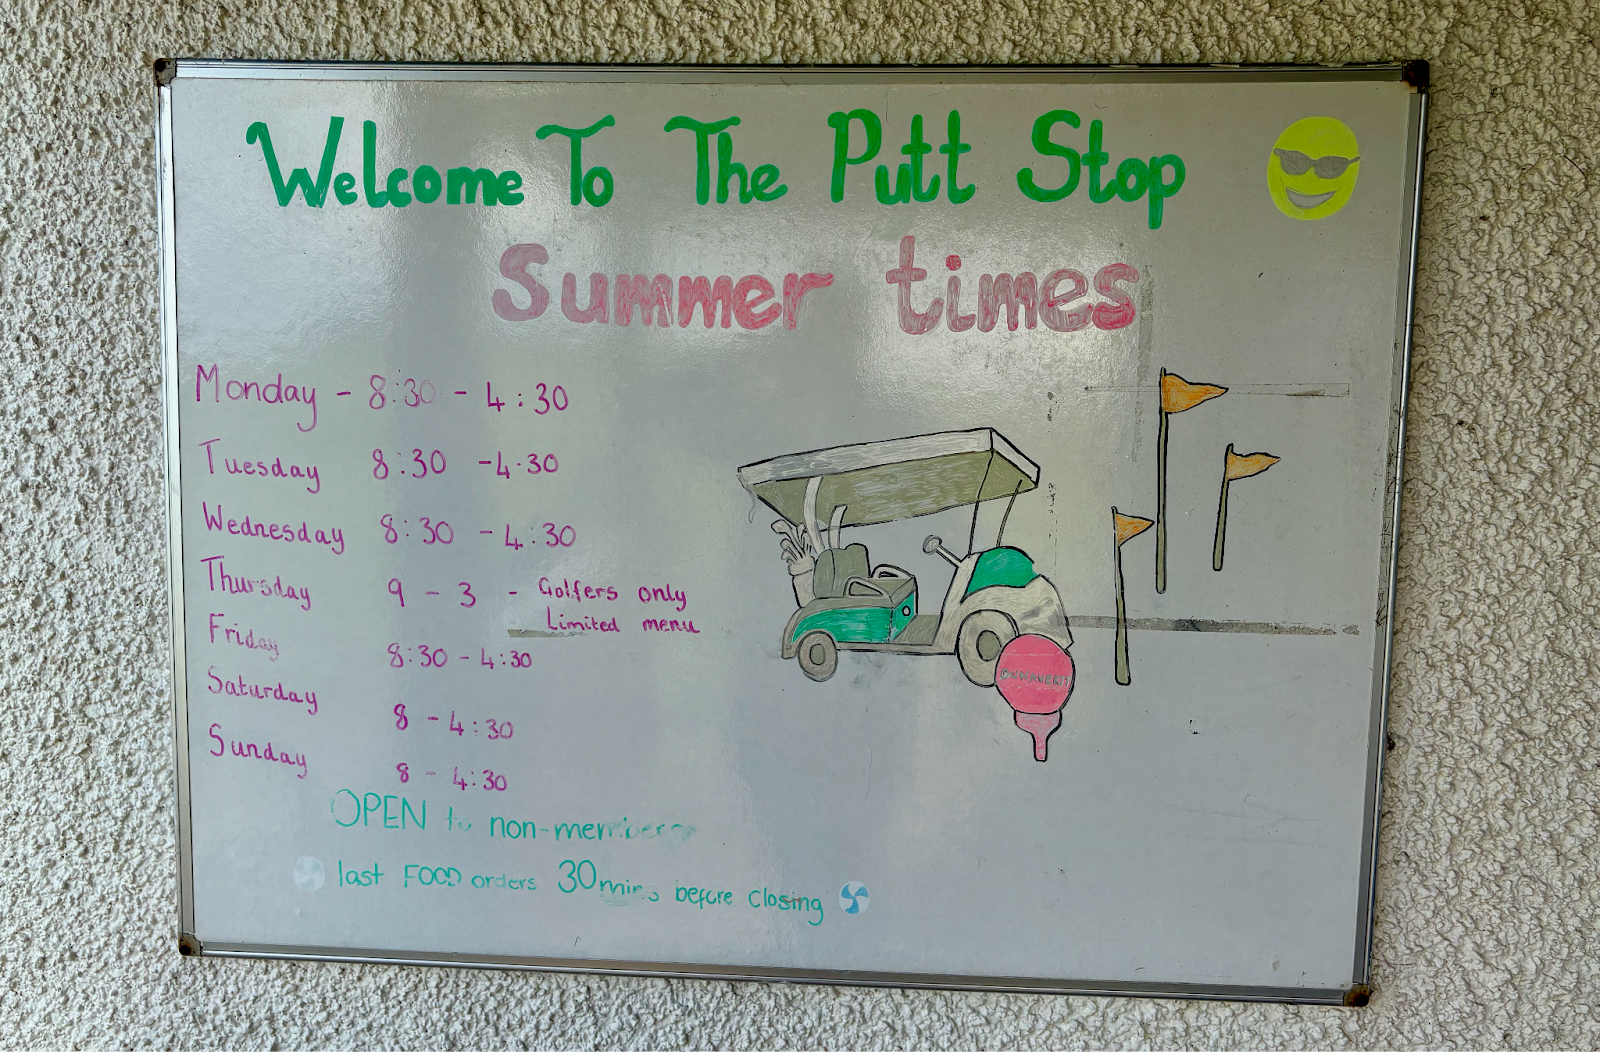 Welcome To The Putt Stop
Summer times
Monday - 8:30 - 4:30
Tuesday 8:30 - 4:30
Wednesday 8:30 - 4:30
Thursday 9 - 3 - Golfers only
Limited menu
Friday 8:30 - 4:30
Saturday 8 - 4:30
Sunday 8 - 4:30
OPEN to non-members
last FOOD orders 30mins before closing